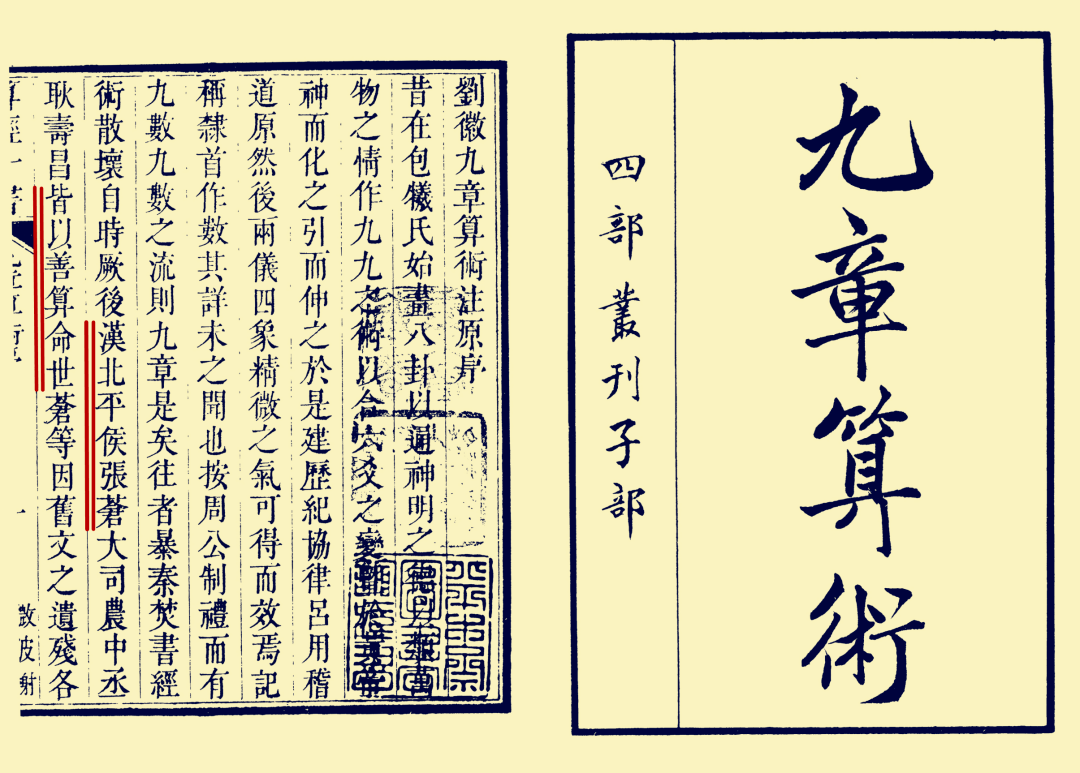 九章算術
四部叢刊子部
劉徽九章算術注原序
昔在包犧氏始畫八卦以通神明之德以類萬
物之情作九九之術以合六爻之變暨於黃帝
神而化之引而伸之於是建歷紀協律呂用稽
道原然後兩儀四象精微之氣可得而效焉記
稱隸首作數其詳未之聞也按周公制禮而有
九數九數之流則九章是矣往者暴秦焚書經
術散壞自時厥後漢北平侯張蒼大司農中丞
耿壽昌皆以善算命世蒼等因舊文之遺殘各